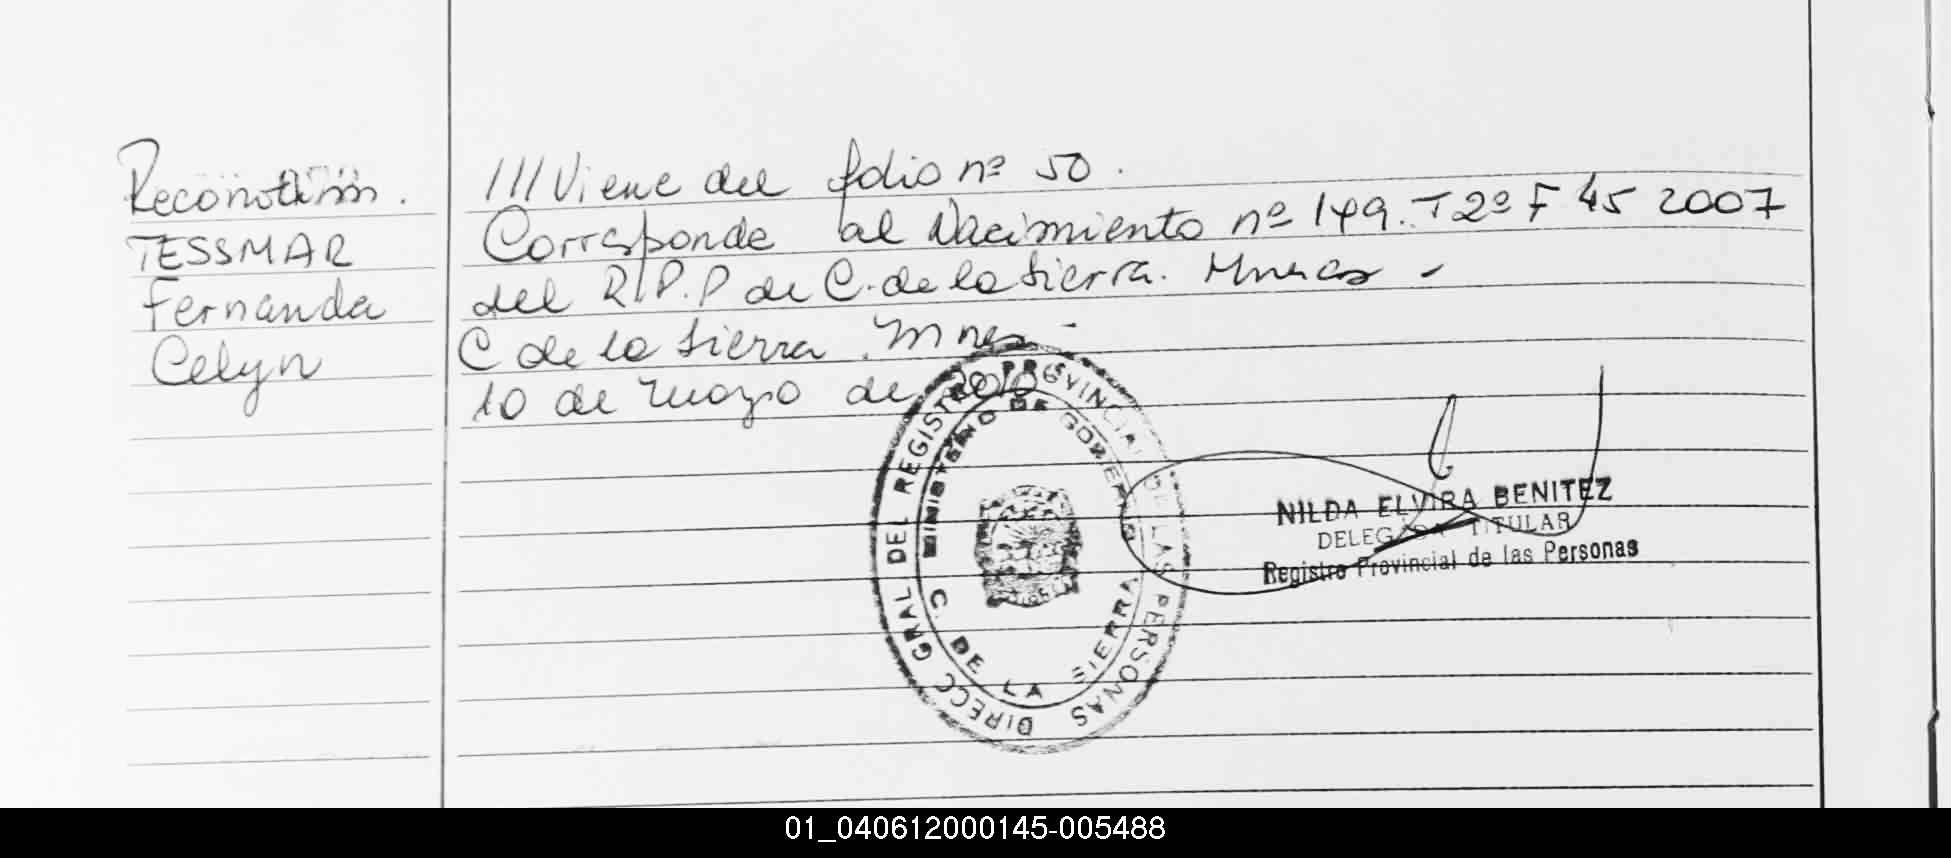 Reconocim.
TESSMAR
Fernanda
Celyn
///Viene del folio nº 50.
Corresponde al Nacimiento nº 149. T 2º F 45 2007
del R.P.P de C. de la Sierra. Mnes -
C de la Sierra. Mnes -
10 de mayo de 2010
DIRECC GRAL DEL REGISTRO PROVINCIAL DE LAS PERSONAS
MINISTERIO DE GOBIERNO
C. DE LA SIERRA
NILDA ELVIRA BENITEZ
DELEGADA TITULAR
Registro Provincial de las Personas
01_040612000145-005488